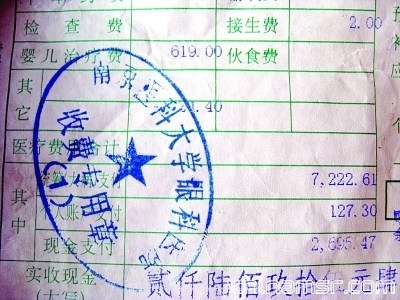 检 查 费
接生费 2.00
婴儿治疗费 619.00 伙食费
其
它 .40
医疗费用合计
支 7,222.61
其 个人账 支付 127.30
中 现金支付 2,695.47
实收现金 贰仟陆佰玖拾伍元肆
(大写)
南京医科大学眼科医
收费专用章
(1)